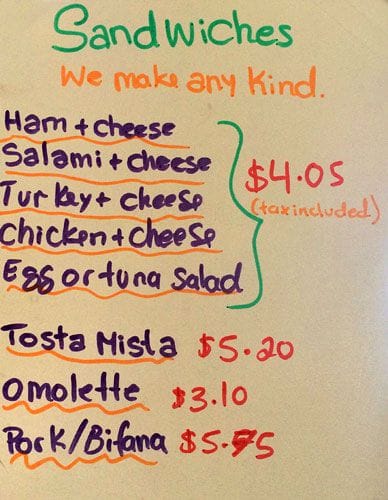 Sandwiches
We make any Kind.
Ham + cheese
Salami + cheese
Turkay + cheese
chicken + cheese
Egg or tuna salad
$4.05
(tax included)
Tosta Mista $5.20
omolette $3.10
Pork/Bifana $5.75